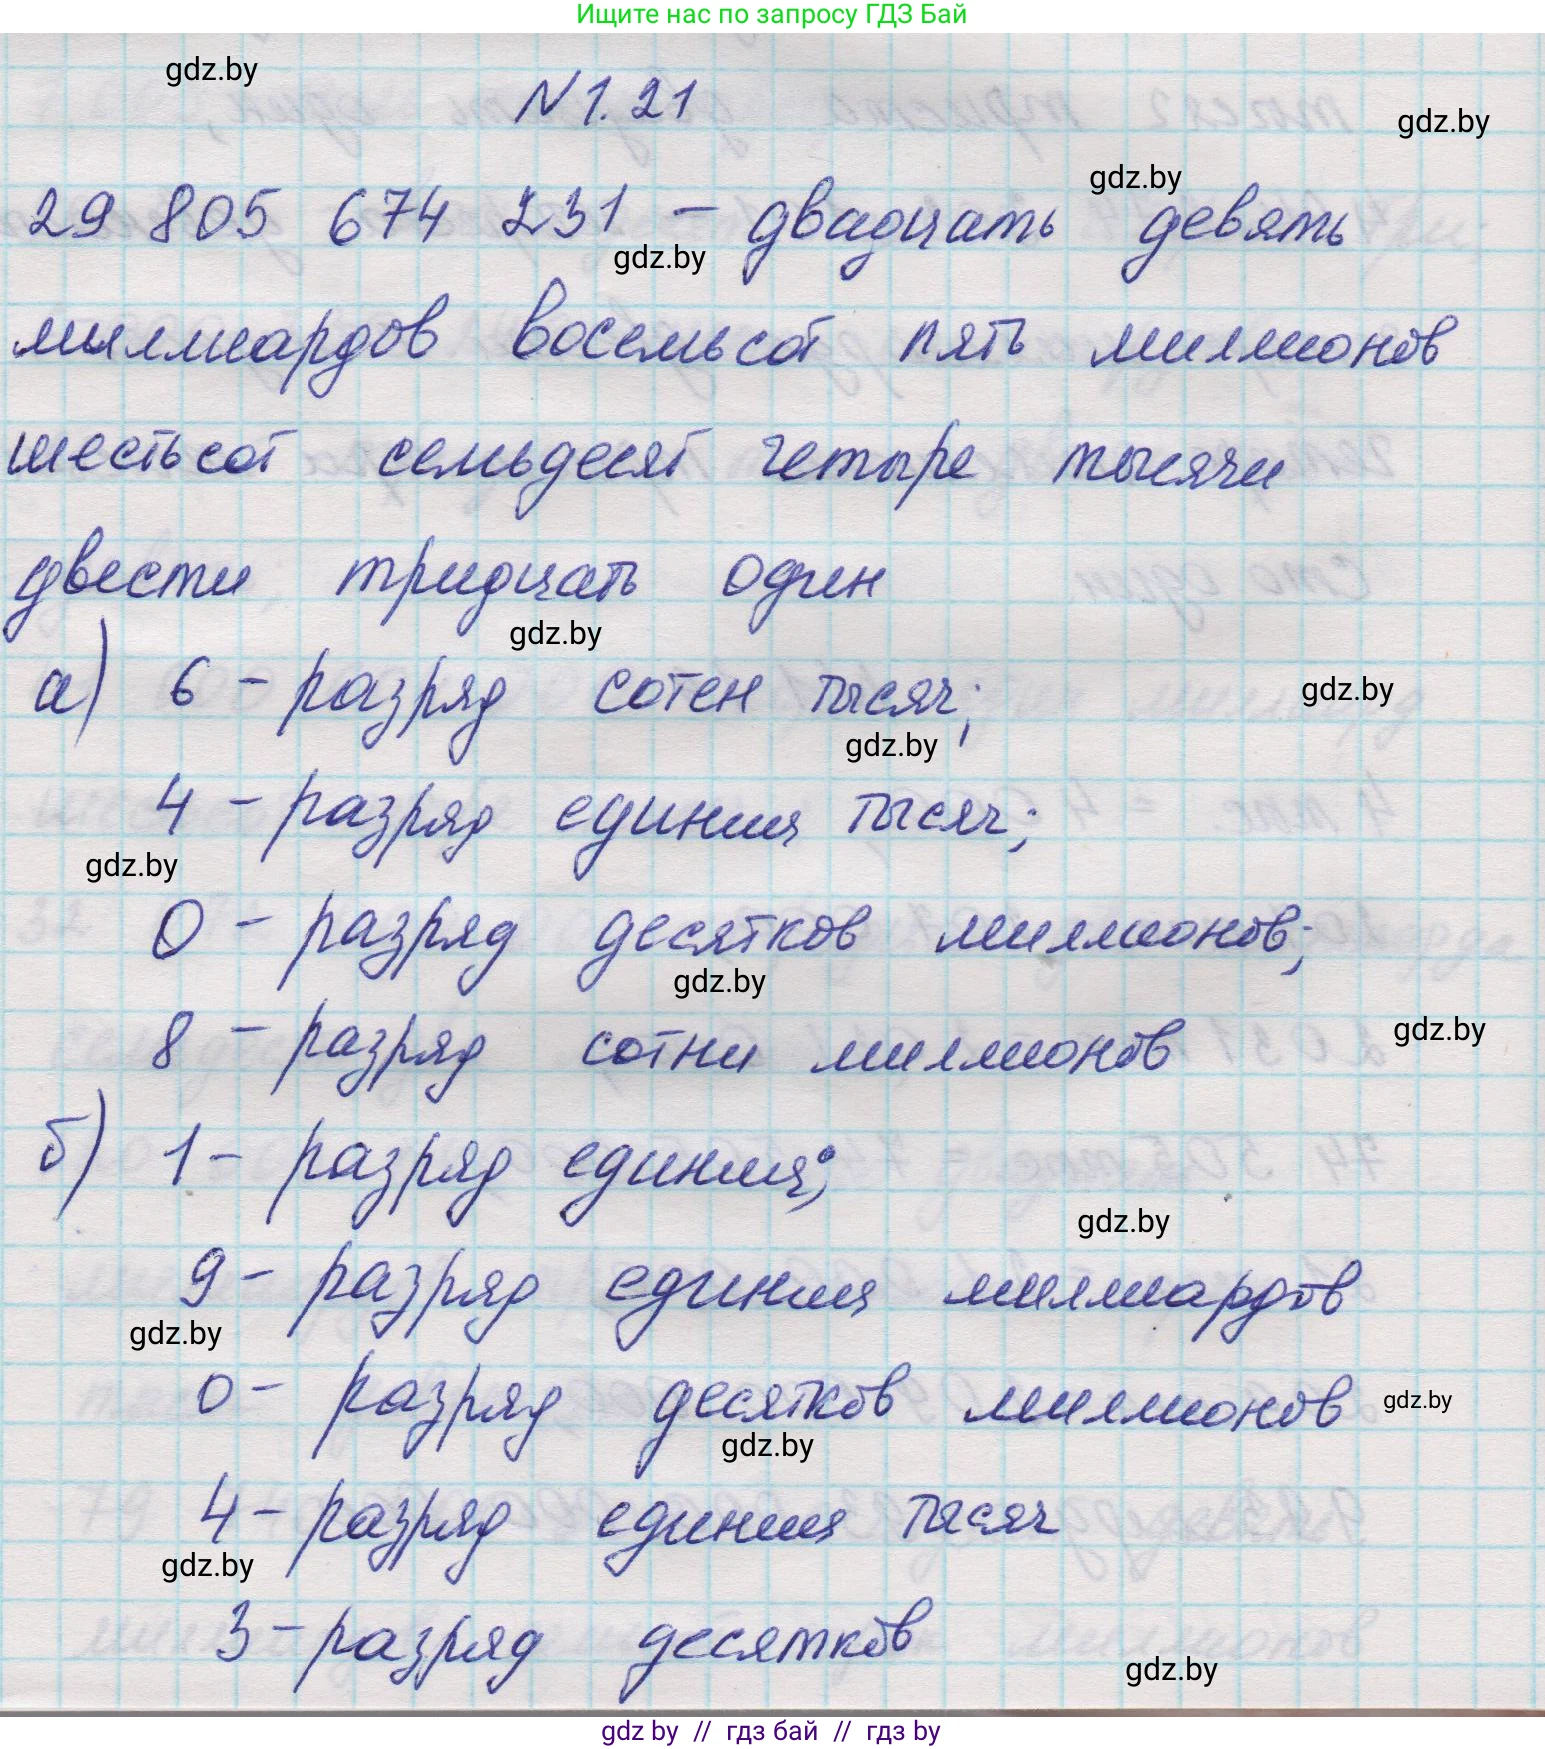 Ищите нас по запросу ГДЗ Бай
gdz.by
N1.21
gdz.by
gdz.by
29 805 674 231 – двадцать девять
gdz.by
миллиардов восемьсот пять миллионов
шестьсот семьдесят четыре тысячи
двести тридцать один
gdz.by
а) 6 – разряд сотен тысяч;
gdz.by
gdz.by
4 – разряд единиц тысяч;
gdz.by
0 – разряд десятков миллионов;
gdz.by
8 – разряд сотни миллионов
gdz.by
б) 1 – разряд единиц;
gdz.by
9 – разряд единиц миллиардов
gdz.by
0 – разряд десятков миллионов
gdz.by
gdz.by
4 – разряд единиц тысяч
gdz.by
3 – разряд десятков
gdz.by
gdz by // гдз бай // гдз by